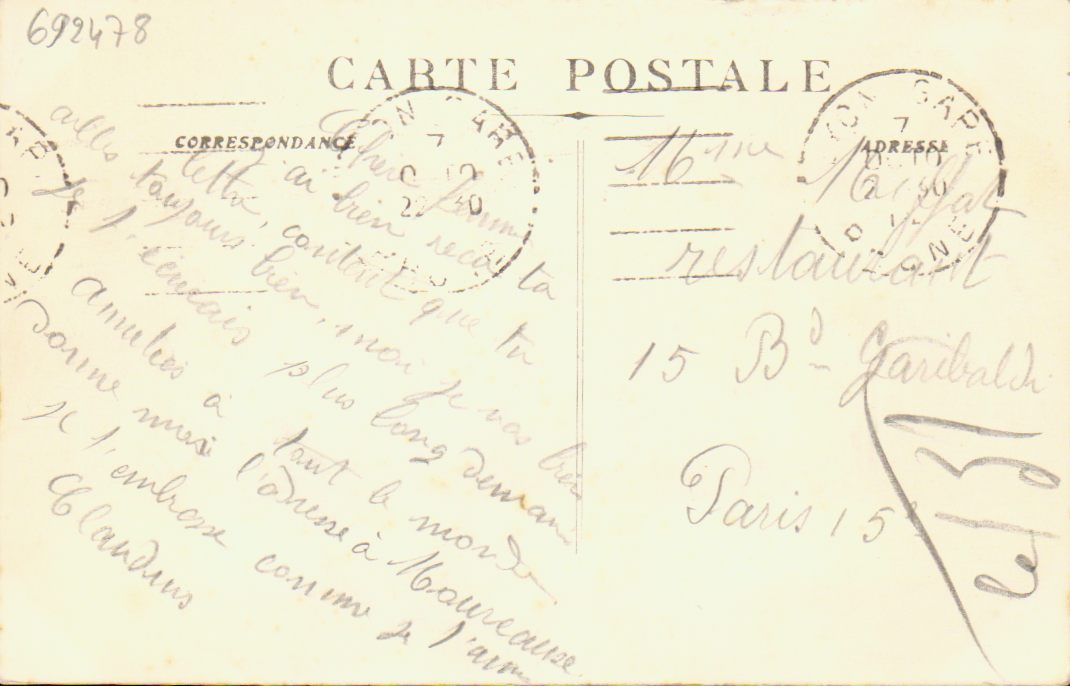 692478
CARTE POSTALE
CORRESPONDANCE
ADRESSE
Chère femme
j'ai bien reçu ta
lettre, content que tu
alles toujours bien, moi je vas bien
je t'écrirais plus long demain
amitiés à tout le monde
donne moi l'adresse à
je t'embrasse comme je t'aime
Claudius
Mme
restaurant
15 Bd Garibaldi
Paris 15
GARE
7
10
30
GARE
7
10
30